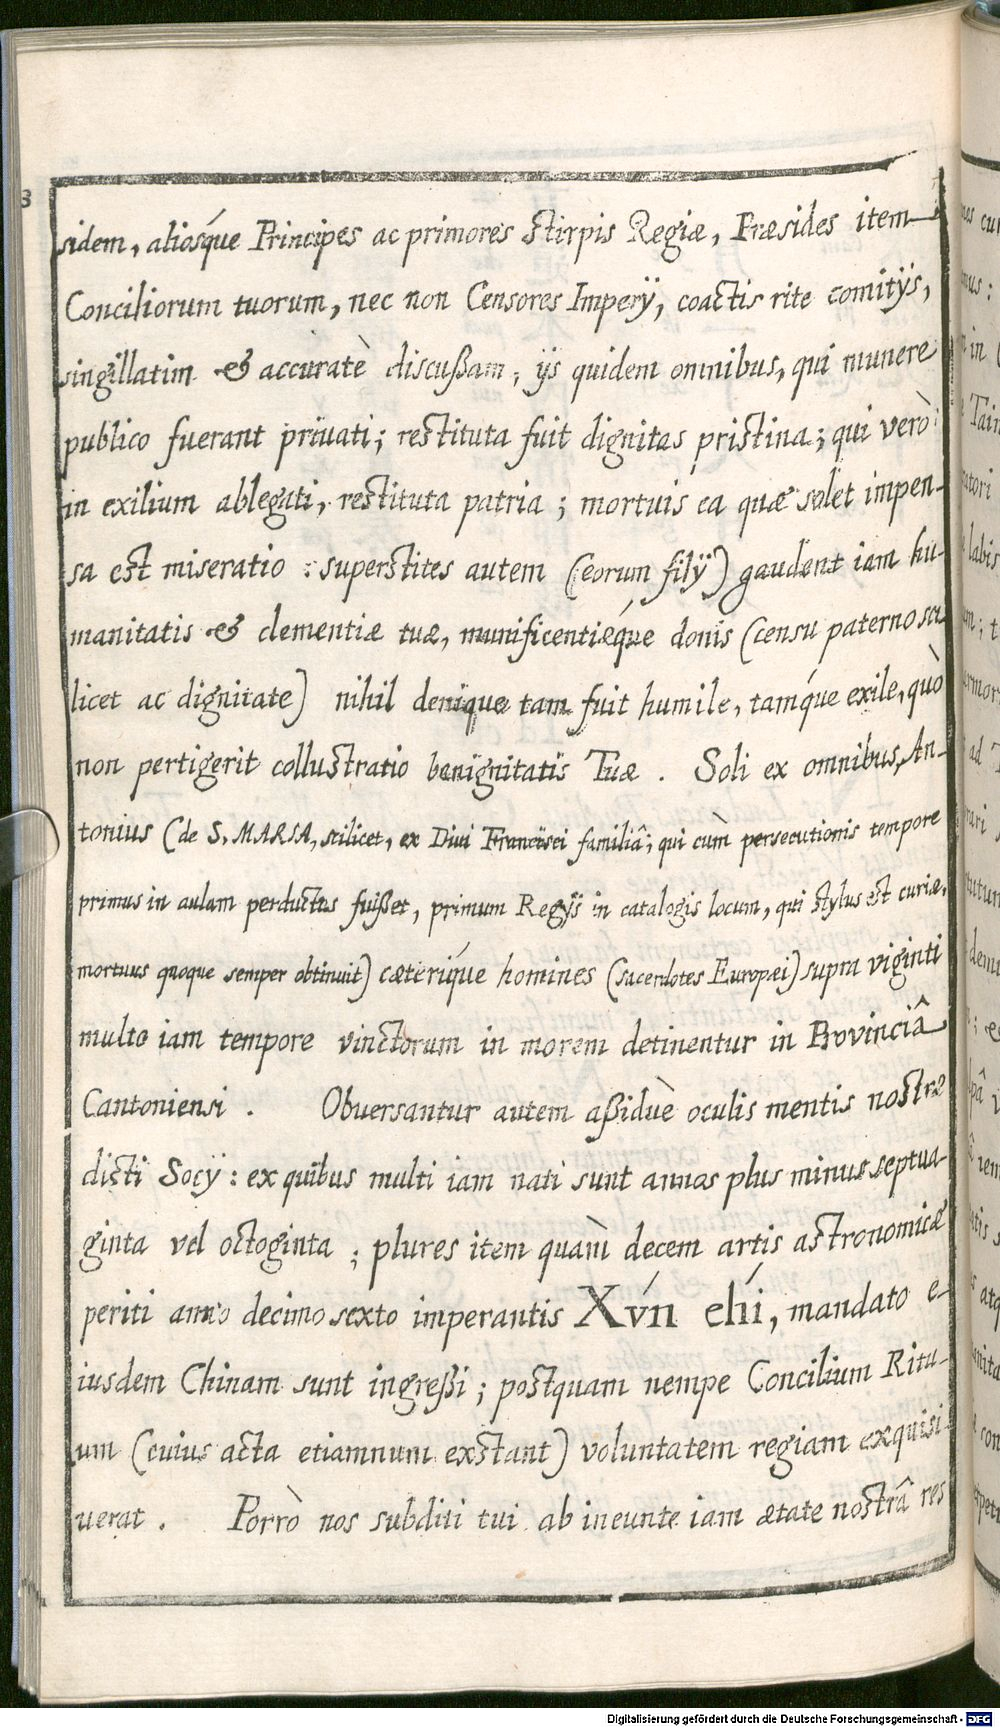 3
sidem, aliosq́ue Principes ac primores Stirpis Regiæ, Præsides item
Conciliorum tuorum, nec non Censores Imperÿ, coactis rite comitÿs,
singillatim & accuratè discußam; ÿs quidem omnibus, qui munere
publico fuerant priuati; restituta fuit dignitas pristina; qui verò
in exilium ablegati, restituta patria; mortuis ea quæ solet impen-
sa est miseratio : superstites autem (eorum filÿ) gaudent iam hu-
manitatis & clementiæ tuæ, munificentiæq́ue donis (censu paterno sci-
licet ac dignitate) nihil denique tam fuit humile, tamq́ue exile, quò
non pertigerit collustratio benignitatis Tuæ . Soli ex omnibus, An-
tonius (de S. MARIA, scilicet, ex Divi Francisci familiâ; qui cùm persecutionis tempore
primus in aulam perductus fuißet, primum Regÿs in catalogis locum, qui stylus est curiæ,
mortuus quoque semper obtinuit) cæteriq́ue homines (sacerdotes Europæi) supra viginti
multo iam tempore vinctorum in morem detinentur in Provinciâ
Cantoniensi . Obuersantur autem aßiduè oculis mentis nostræ
dicti Socÿ : ex quibus multi iam nati sunt annos plus minus septua-
ginta vel octoginta ; plures item quàm decem artis astronomicæ
periti anno decimo sexto imperantis Xv́n chí, mandato e-
iusdem Chinam sunt ingreßi ; postquam nempe Concilium Ritu-
um (cuius acta etiamnum exstant) voluntatem regiam exquisi-
uerat . Porrò nos subditi tui ab ineunte iam ætate nostrâ res
Digitalisierung gefördert durch die Deutsche Forschungsgemeinschaft - DFG